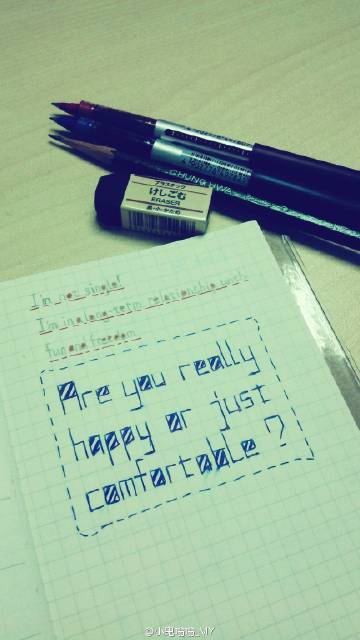 CHUNG HWA
プラスチック
けしごむ
ERASER
I'm not single!
I'm in a long-term relationship with
fun and freedom.
Are you really
happy or just
comfortable ?
@小鬼嘻嘻_MY